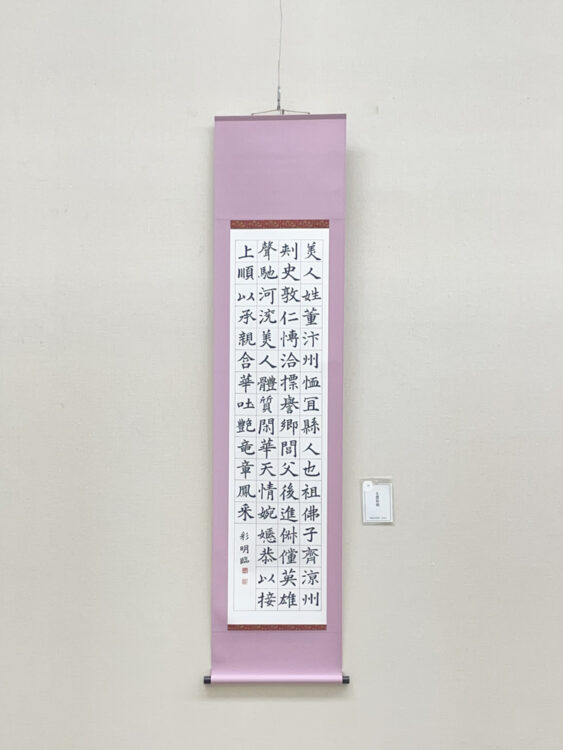 美人姓董汴州恤冝縣人也祖佛子齊涼州
刾史敦仁愽洽摽譽鄉閭父後進俶儻英雄
聲馳河浼美人體質閑華天情婉嫕恭以接
上順以承親含華吐艷竜章鳳采
彩明臨